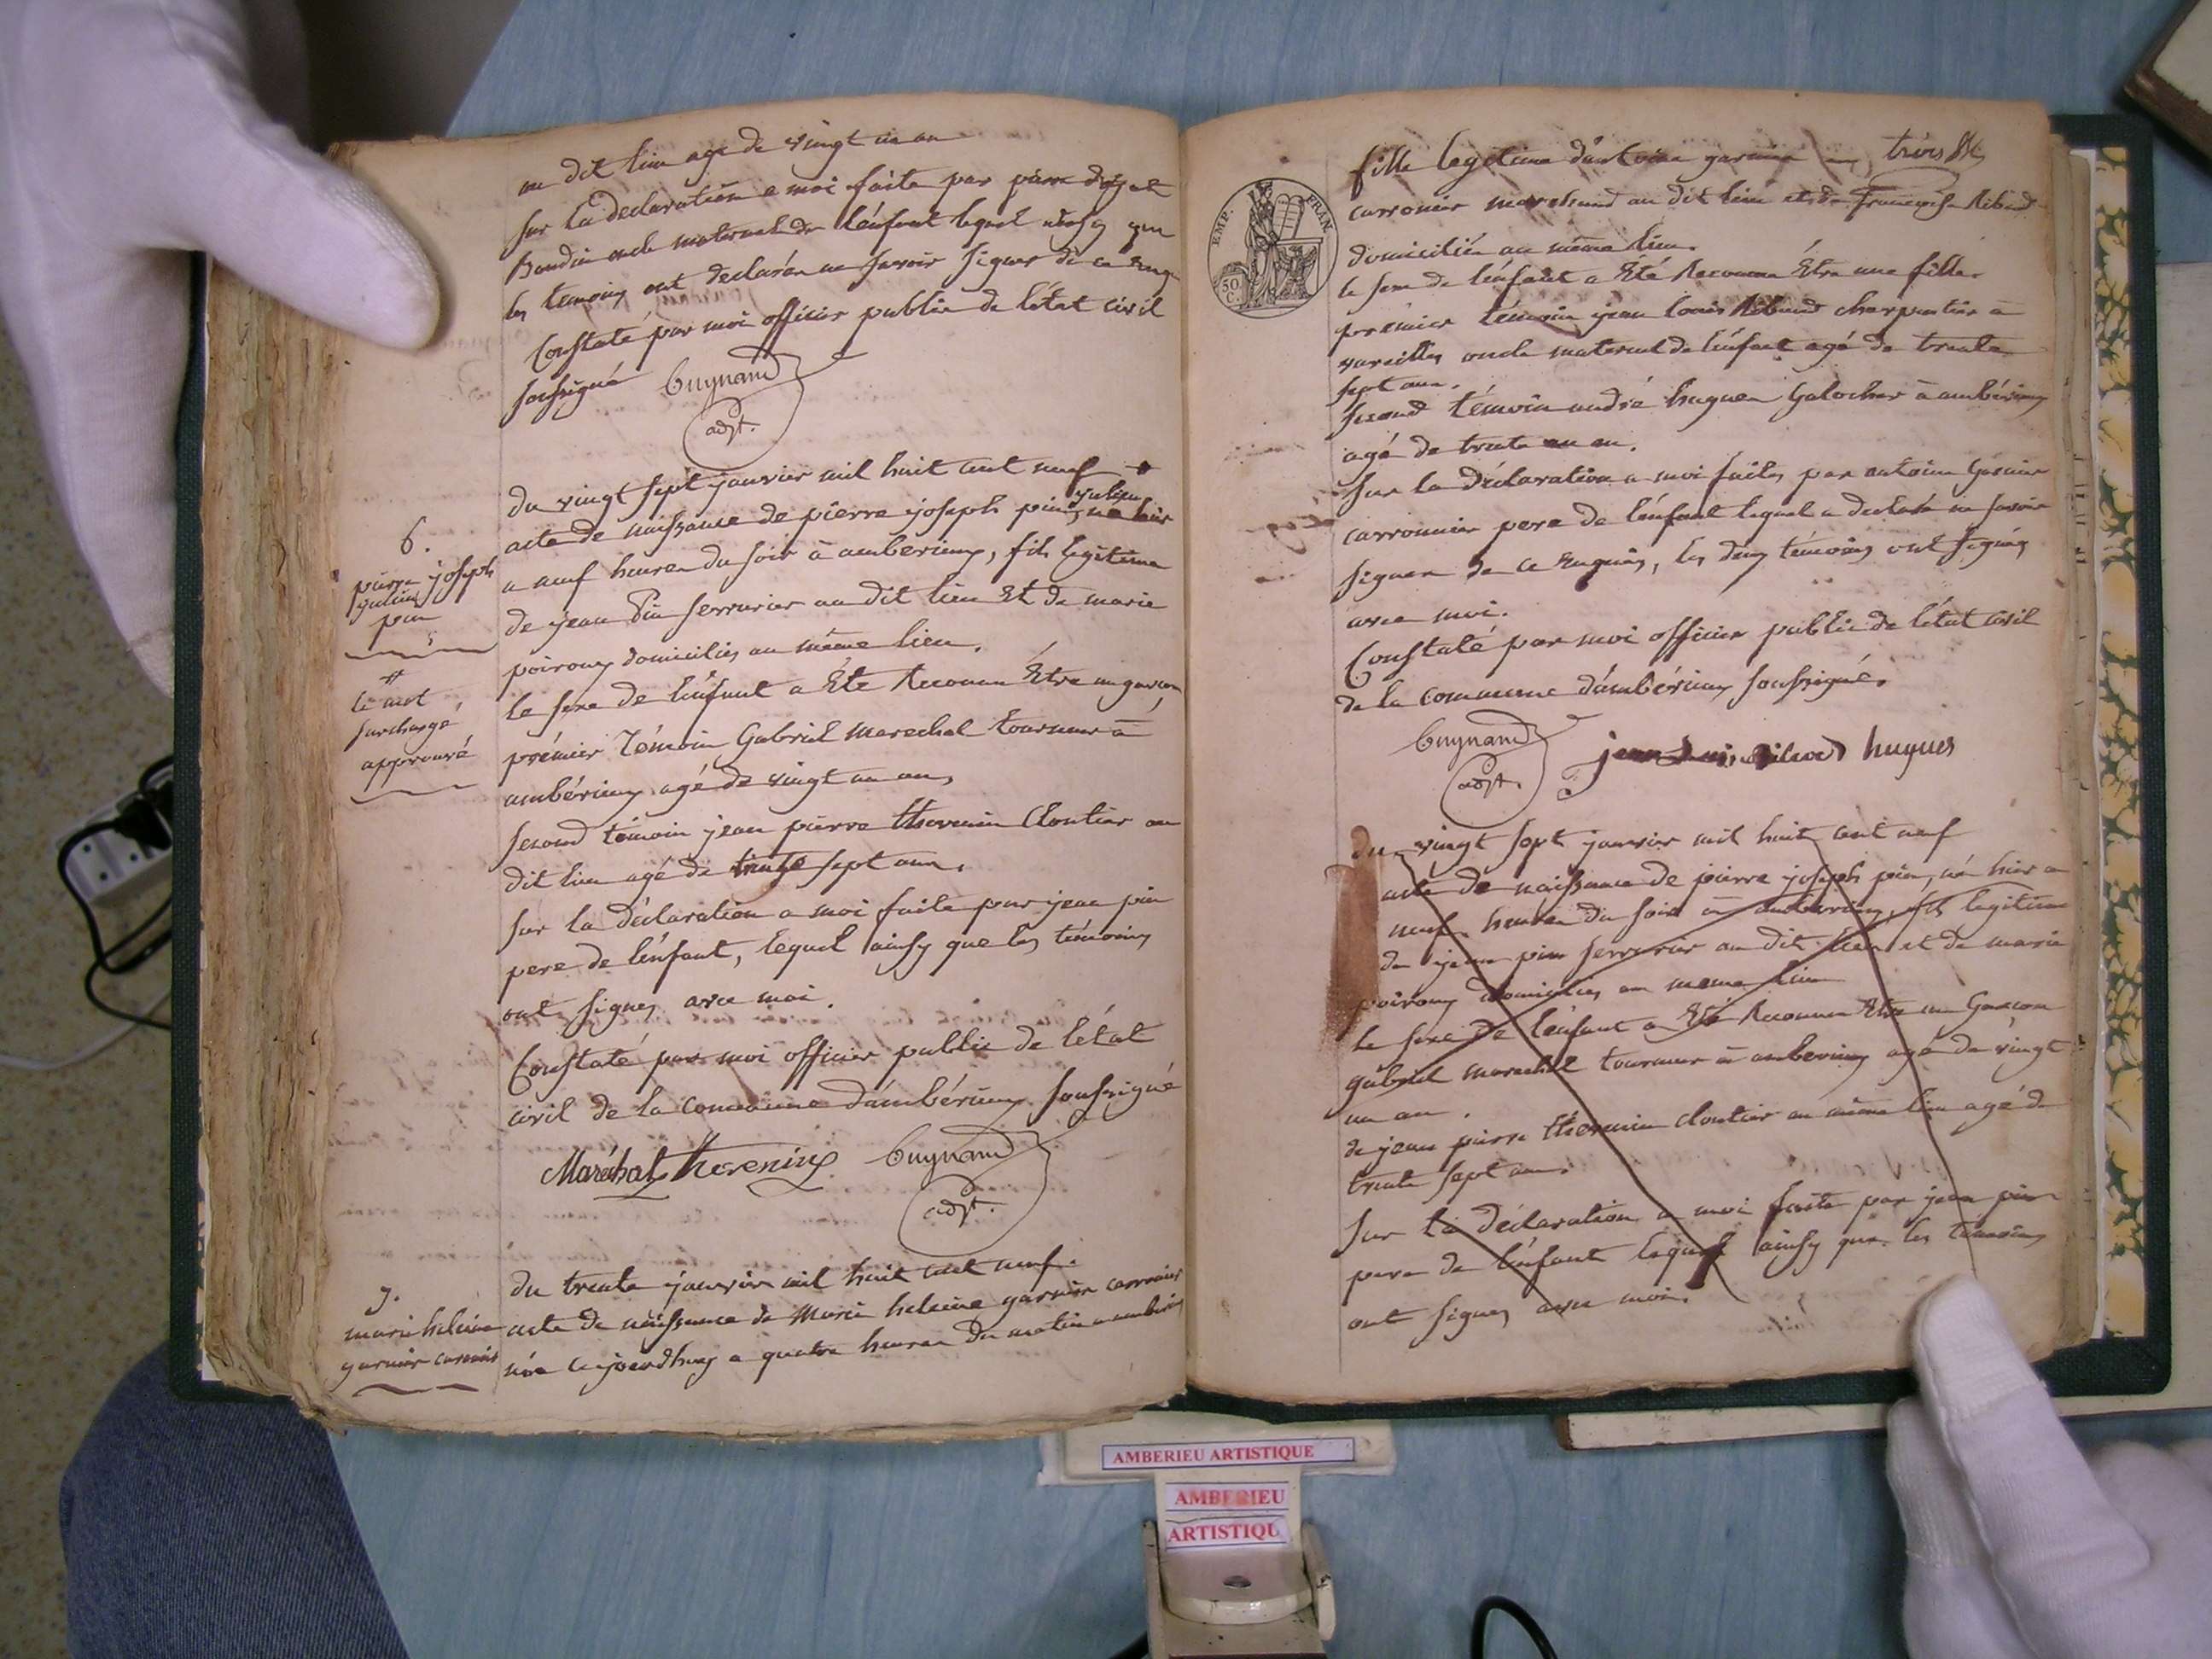 au dit lieu agé de vingt un an
sur la declaration a moi faite par pierre
Baudin oncle maternel de l'enfant lequel ainsy que
les temoins ont declarés ne savoir signer de ce enquis
Constaté par moi officier public de l'état civil
soussigné Guynand
adjt.
du vingt sept janvier mil huit cent neuf #
julien
acte de naissance de pierre joseph pin, né hier
6.
pierre joseph
julien
pin
a neuf heures du soir à amberieux, fils legitime
de jean Pin serrurier au dit lieu Et de marie
poiroux domiciliés au même lieu.
#
le mot
surchargé
approuvé
le sexe de l'enfant a Eté Reconnu Etre un garcon
prémier Témoin Gabriel marechal tourneur à
ambérieux agé de vingt un ans
second témoin jean pierre thevenin Cloutier au
dit lieu agé de trente sept ans.
sur la déclaration a moi faite par jean pin
pere de l'énfant, lequel ainsy que les témoins
ont signés avec moi.
Constaté par moi officier public de l'état
civil de la commune d'ambérieux soussigné
Maréchal thevenin Guynand
adjt.
7.
marie heleine
garnier caronier
du trente janvier mil huit cent neuf.
acte de naissance de Marie heleine garnier carronier
née cejourdhuy a quatre heures du matin a amberieux
fille legitime d'antoine garnier trois
carronier marchand au dit lieu et de Françoise Ribaud
domiciliés au même lieu.
EMP. FRAN.
50 C.
le sexe de l'énfant a Eté Reconnu Etre une fille.
prémier témoin jean louis Ribaud charpentier à
vareilles oncle maternel de l'énfant agé de trente
sept ans.
second témoin andré hugues Galocher à ambérieux
agé de trente un an.
sur la déclaration a moi faite par antoine Garnier
carronnier pere de l'énfant lequel a declaré ne savoir
signer de ce enquis, les deux témoins ont signés
avec moi.
Constaté par moi officier public de l'état civil
de la commune d'ambérieux soussigné.
Guynand jean Louis Ribaud hugues
adjt.
du vingt sept janvier mil huit cent neuf
acte de naissance de pierre joseph pin, né hier a
neuf heures du soir à amberieux, fils legitime
de jean pin serrurier au dit lieu et de marie
poiroux domiciliés au meme lieu
le sexe de l'énfant a Eté Reconnu Etre un Garcon
gabriel marechal tourneur à amberieux agé de vingt
un an.
de jean pierre thevenin cloutier au même lieu agé de
trente sept ans.
sur la déclaration a moi faite par jean pin
pere de l'énfant lequel ainsy que les témoins
ont signés avec moi.
AMBERIEU ARTISTIQUE
AMBERIEU
ARTISTIQU